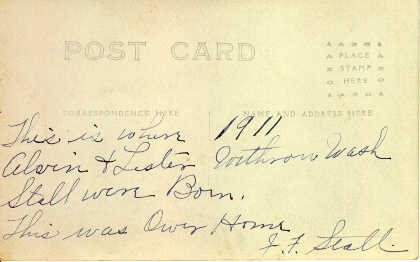 POST CARD
PLACE
STAMP
HERE
CORRESPONDENCE HERE
NAME AND ADDRESS HERE
This is where 1911
Alvin & Lester Withrow Wash
Stall were Born.
This was Ower Home
F. F. Stall.